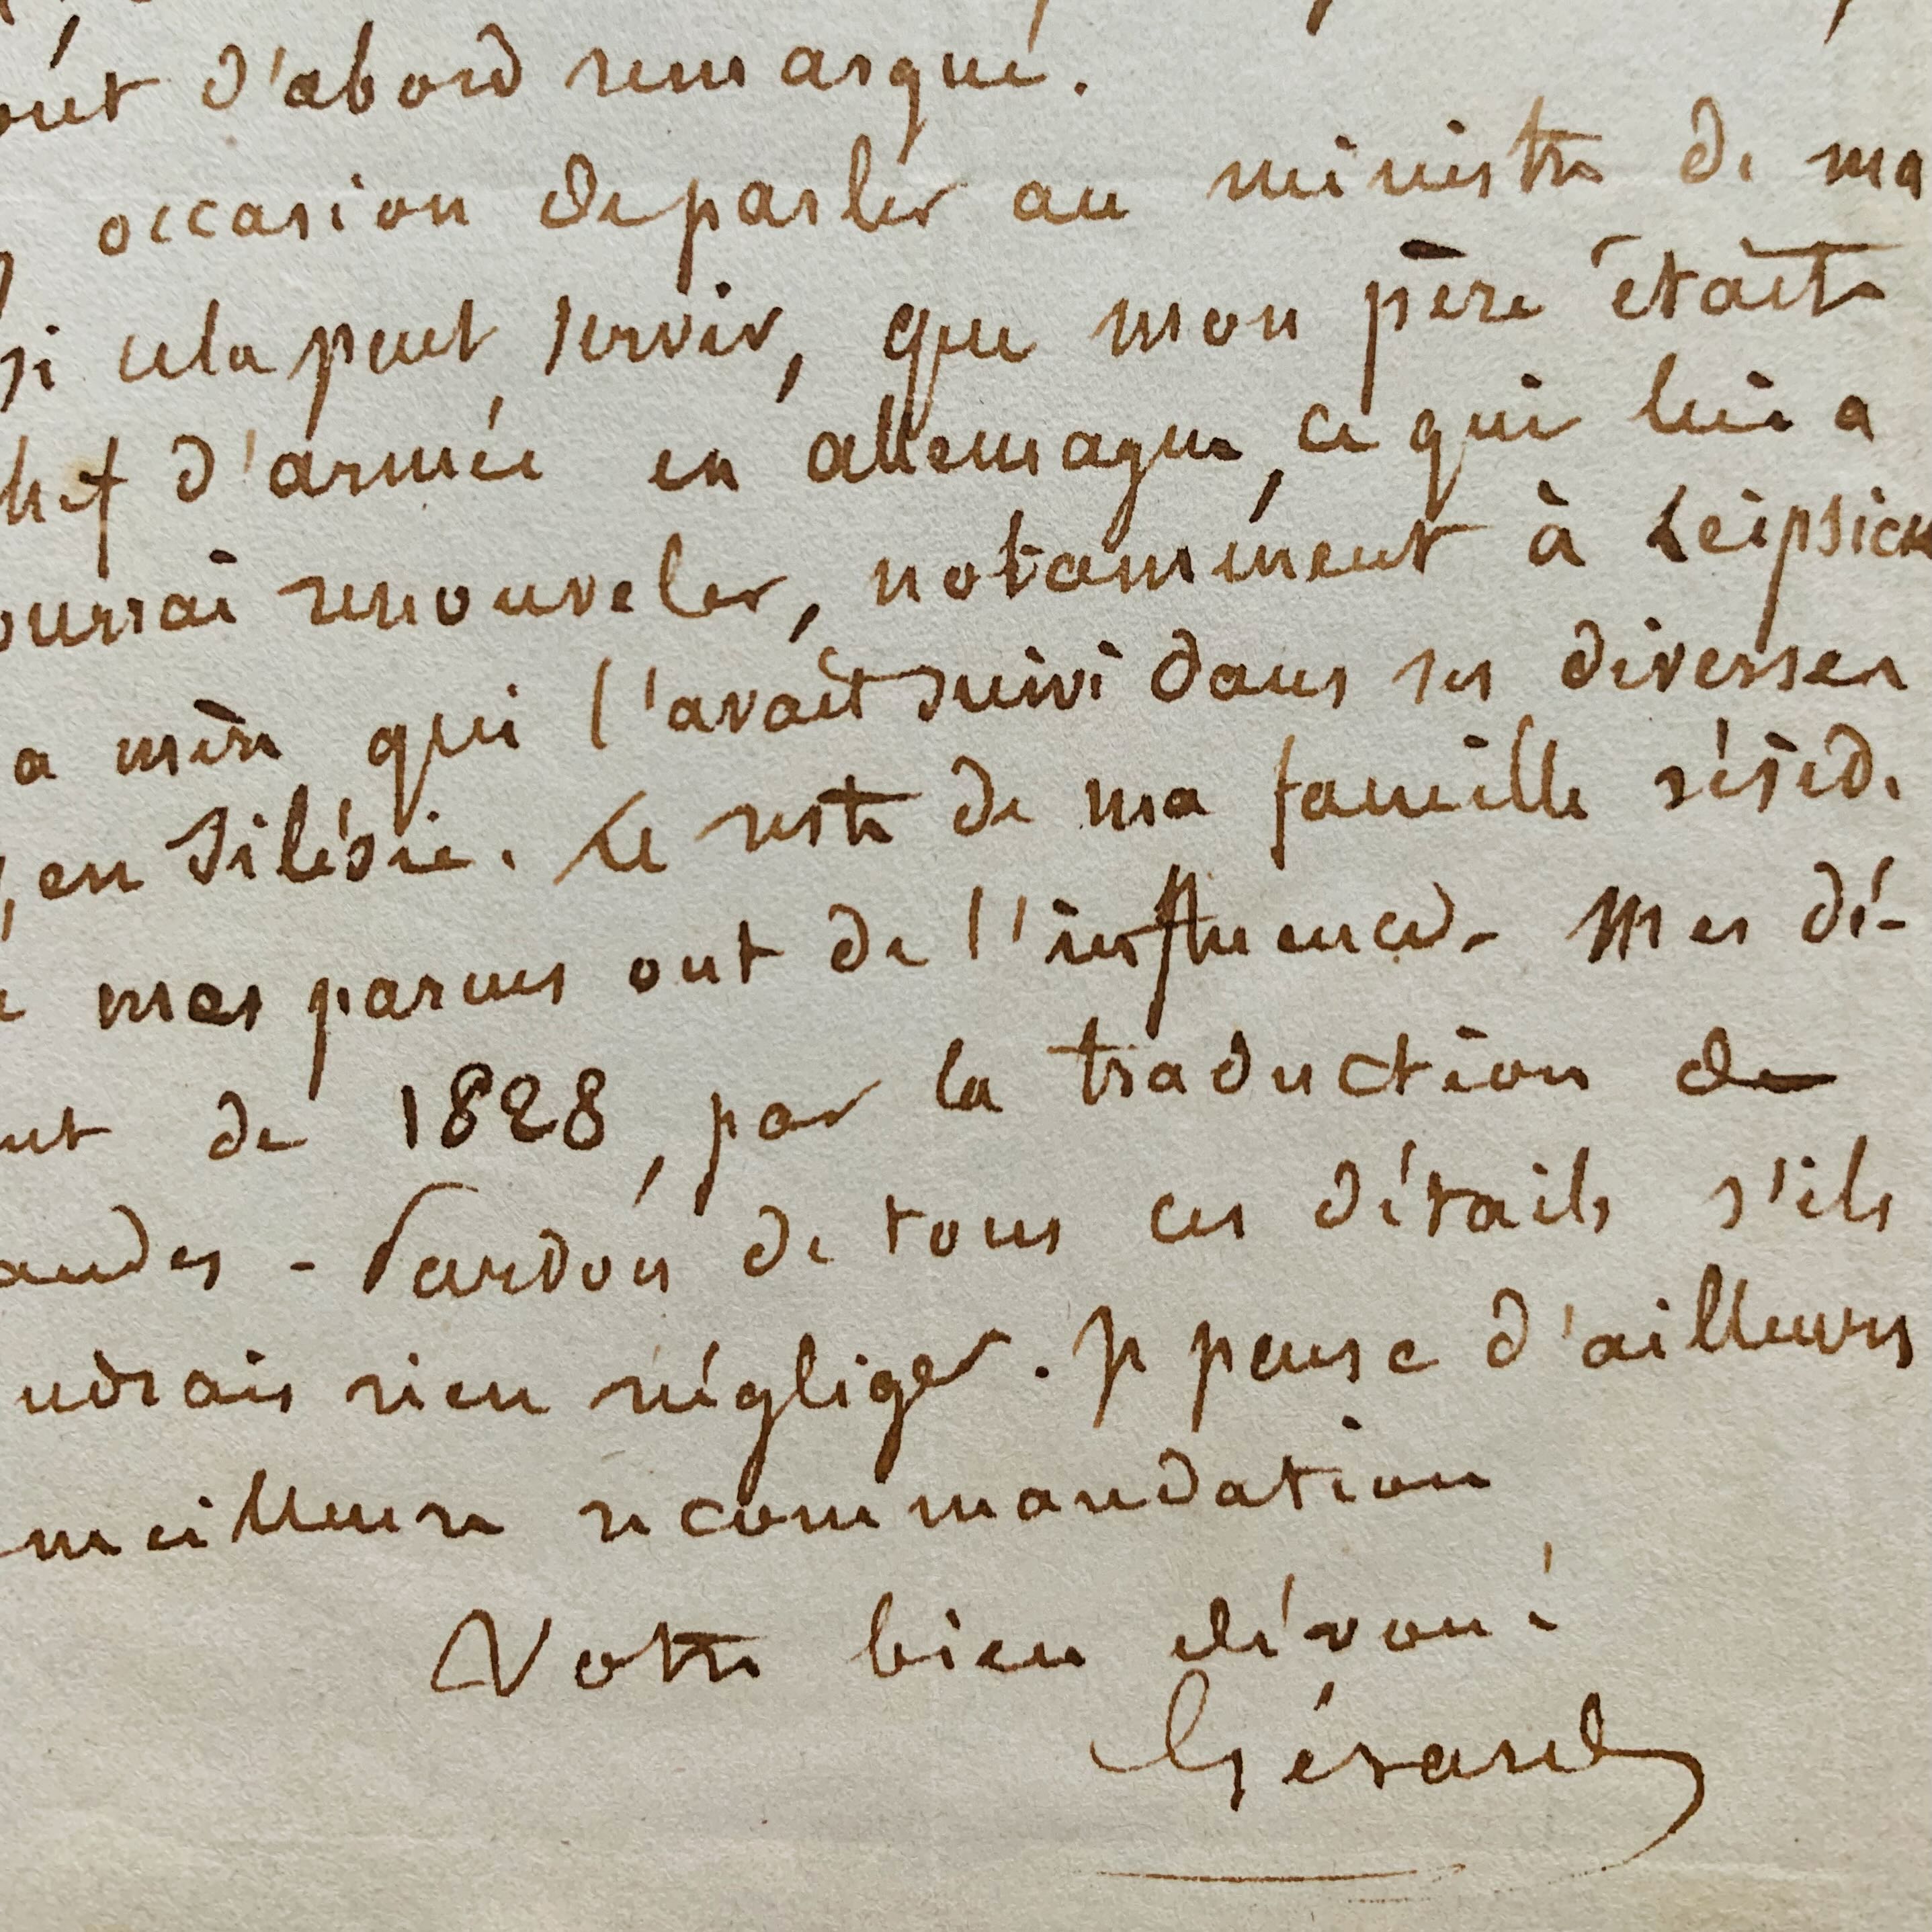 out d'abord remarqué.
occasion de parler au ministre de ma
si cela peut servir, que mon père était
hef d'armée en allemagne, ce qui lui a
ourrai renouveler, notamment à Leipsick
a mère qui l'avait suivi dans ses diverses
, en Silésie. Le reste de ma famille réside
mes parens ont de l'influence. Mes dé-
ut de 1828, par la traduction de
andes - Pardon de tous ces détails s'ils
udrais rien négliger. Je pense d'ailleurs
meilleure recommandation
Votre bien dévoué
Gérard